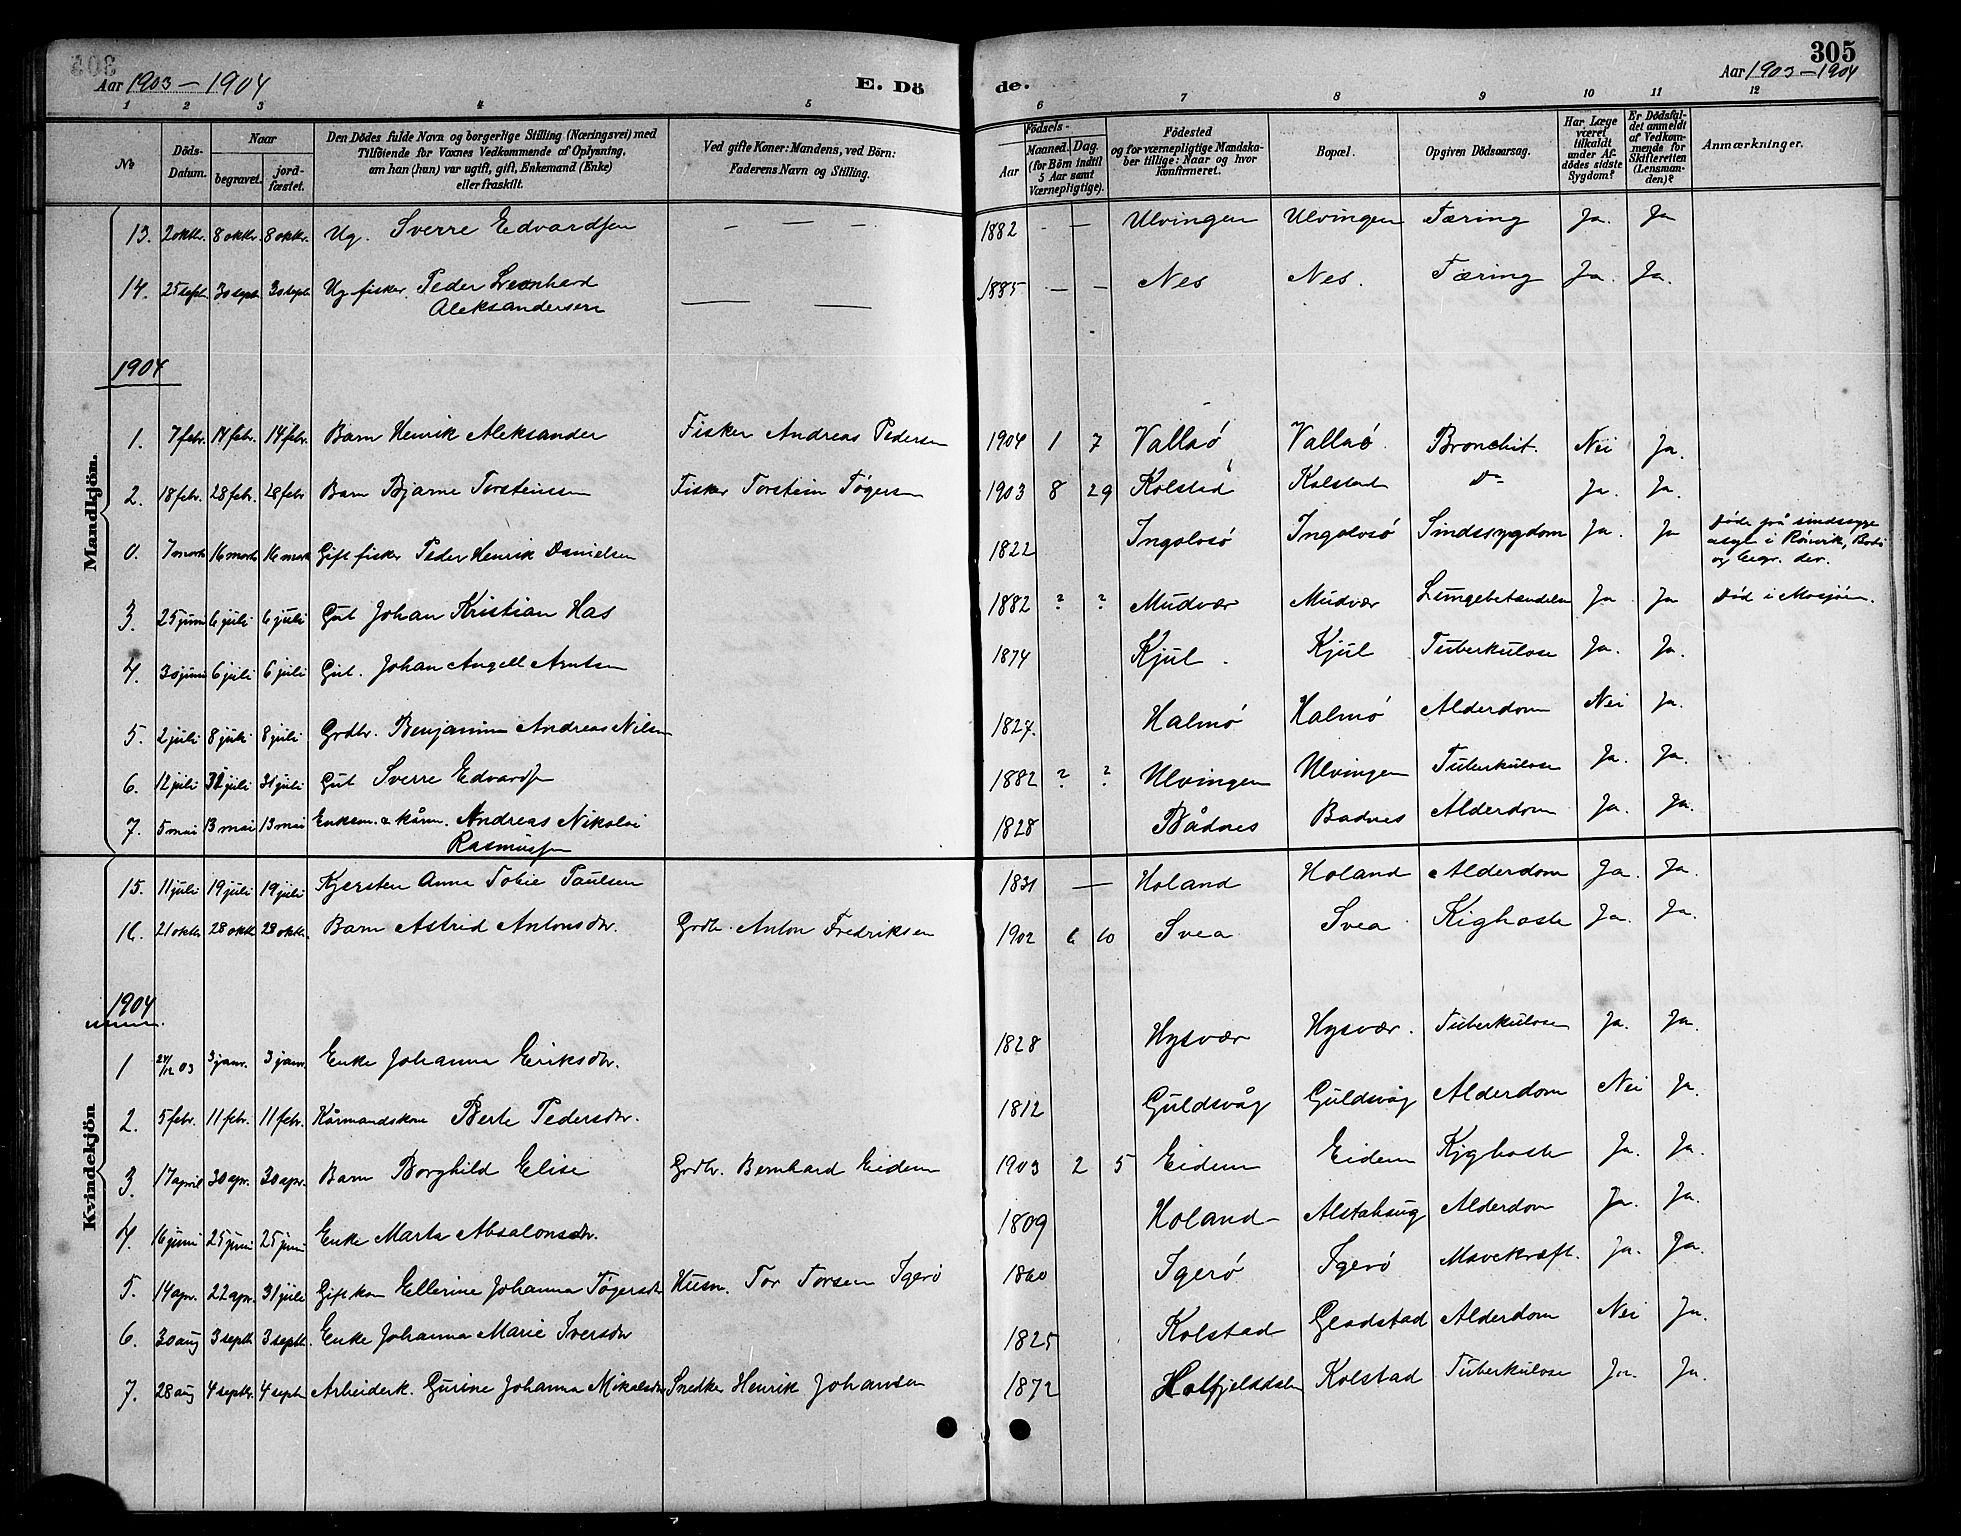 305
Aar 1903-1904 E. Dö de. Aar 1903-1904
1 2 3 4 5 6 7 8 9 10 11 12
No
Döds-Datum.
Naar
begravet.
jordfæstet.
Den Dödes fulde Navn og borgerlige Stilling (Næringsvei) med Tilföiende for Voxnes Vedkommende af Oplysning, om han (hun) var ugift, gift, Enkemand (Enke) eller fraskilt.
Ved gifte Koner: Mandens, ved Börn: Faderens Navn og Stilling.
Födsels-
Aar
Maaned. Dag.
(for Börn indtil 5 Aar samt Værnepligtige).
Födested og for værnepligtige Mandskaber tillige: Naar og hvor konfirmeret.
Bopæl.
Opgiven Dödsaarsag.
Har Læge været tilkaldt under Afdödes sidste Sygdom?
Er Dödsfaldet anmeldt af Vedkommende for Skifteretten (Lensmanden)?
Anmærkninger.
Mandkjön.
13. 2 oktr. 8 oktr. 8 oktr. Ug. Sverre Edvardsen — — 1882 - — Ulvingen Ulvingen Tæring Ja. Ja
14. 25 sept. 30 sept. 30 sept. Ug fisker. Peder Leonhard Aleksandersen — — 1885 — — Nes Nes. Tæring Ja. Ja.
1904
1. 7 febr. 14 febr. 14 febr. Barn Henrik Aleksander Fisker Andreas Pedersen 1904 1 7 Vallsö Vallsö. Bronchit. Nei Ja.
2. 18 febr. 28 febr. 28 febr Barn Bjarne Torsteinssen Fisker Torstein Tögersen 1903 8 29 Kolstad Kolstad Do Ja. Ja.
0. 7 marts 16 marts 16 mart Gift fisker Peder Henrik Danielsen 1822 Ingolvsö Ingolvsö Sindssygdom Ja. Ja Döde på sindssyge asyl i Rönvik, Bodö og begr. der.
3. 25 juni 6 juli 6 juli Gut Johan Kristian Has 1882 ? ? Mudvær Mudvær Lungebetændelse Ja Ja Död i Mosjöen.
4. 30 juni 6 juli 6 juli Gut. Johan Angell Arntsen 1874 Kjul. Kjul Tuberkulose Ja. Ja.
5. 2 juli 8 juli 8 juli Grdbr. Benjamin Andreas Nilsen 1827. Halmö Halmö Alderdom Nei Ja.
6. 12 juli 31 juli 31 juli Gut Sverre Edvards 1882 ? ? Ulvingen Ulvingen Tuberkulose Ja. Ja.
7. 5 mai 13 mai 13 mai Enkem. & kårm. Andreas Nikolai Rasmussen 1828 Bådnes Badnes Alderdom Ja. Ja.
Kvindekjön
15. 11 juli 19 juli 19 juli Kjersten Anna Tobie Paulsen 1831 — Holand Holand Alderdom Ja. Ja.
16. 21 oktr 28 oktr 28 oktr. Barn Astrid Antonsdtr. Grdbr. Anton Fredriksen 1902 6 10 Svea Svea Kighoste Ja. Ja.
1904
1 24/12 03 3 janr. 3 janr. Enke Johanna Eriksdtr. 1828 Hysvær Hysvær. Tuberkulose Ja. Ja.
2. 5 febr. 11 febr. 11 febr. Kårmandskone Berte Pedersdtr. 1812 Guldsvåg Guldsvåg Alderdom Nei Ja.
3. 17 april 30 apr. 30 apr. Barn Borghild Elise Grdbr. Bernhard Eidem 1903 2 5 Eidem Eidem Kighoste Ja. Ja.
4. 16 juni 25 juni 25 juni Enke Marta Absalonsdtr. 1809 Holand Alstahaug Alderdom Ja. Ja.
5. 14 apr. 22 apr. 31 juli Gift kone Ellerine Johanna Tögersdtr Husm. Tor Torsen Igerö 1860 Igerö Igerö Mavekræft. Ja. Ja.
6. 30 aug 3 septr. 3 septr. Enke Johanna Marie Iversdtr 1825 Kolstad Gladstad Alderdom Nei Ja.
7. 28 aug 4 septr. 4 septr Arbeiderk. Gurine Johanna Mikalsdtr Snedker Henrik Johansen 1872 Hatfjelddalen Kolstad Tuberkulose Ja. Ja.